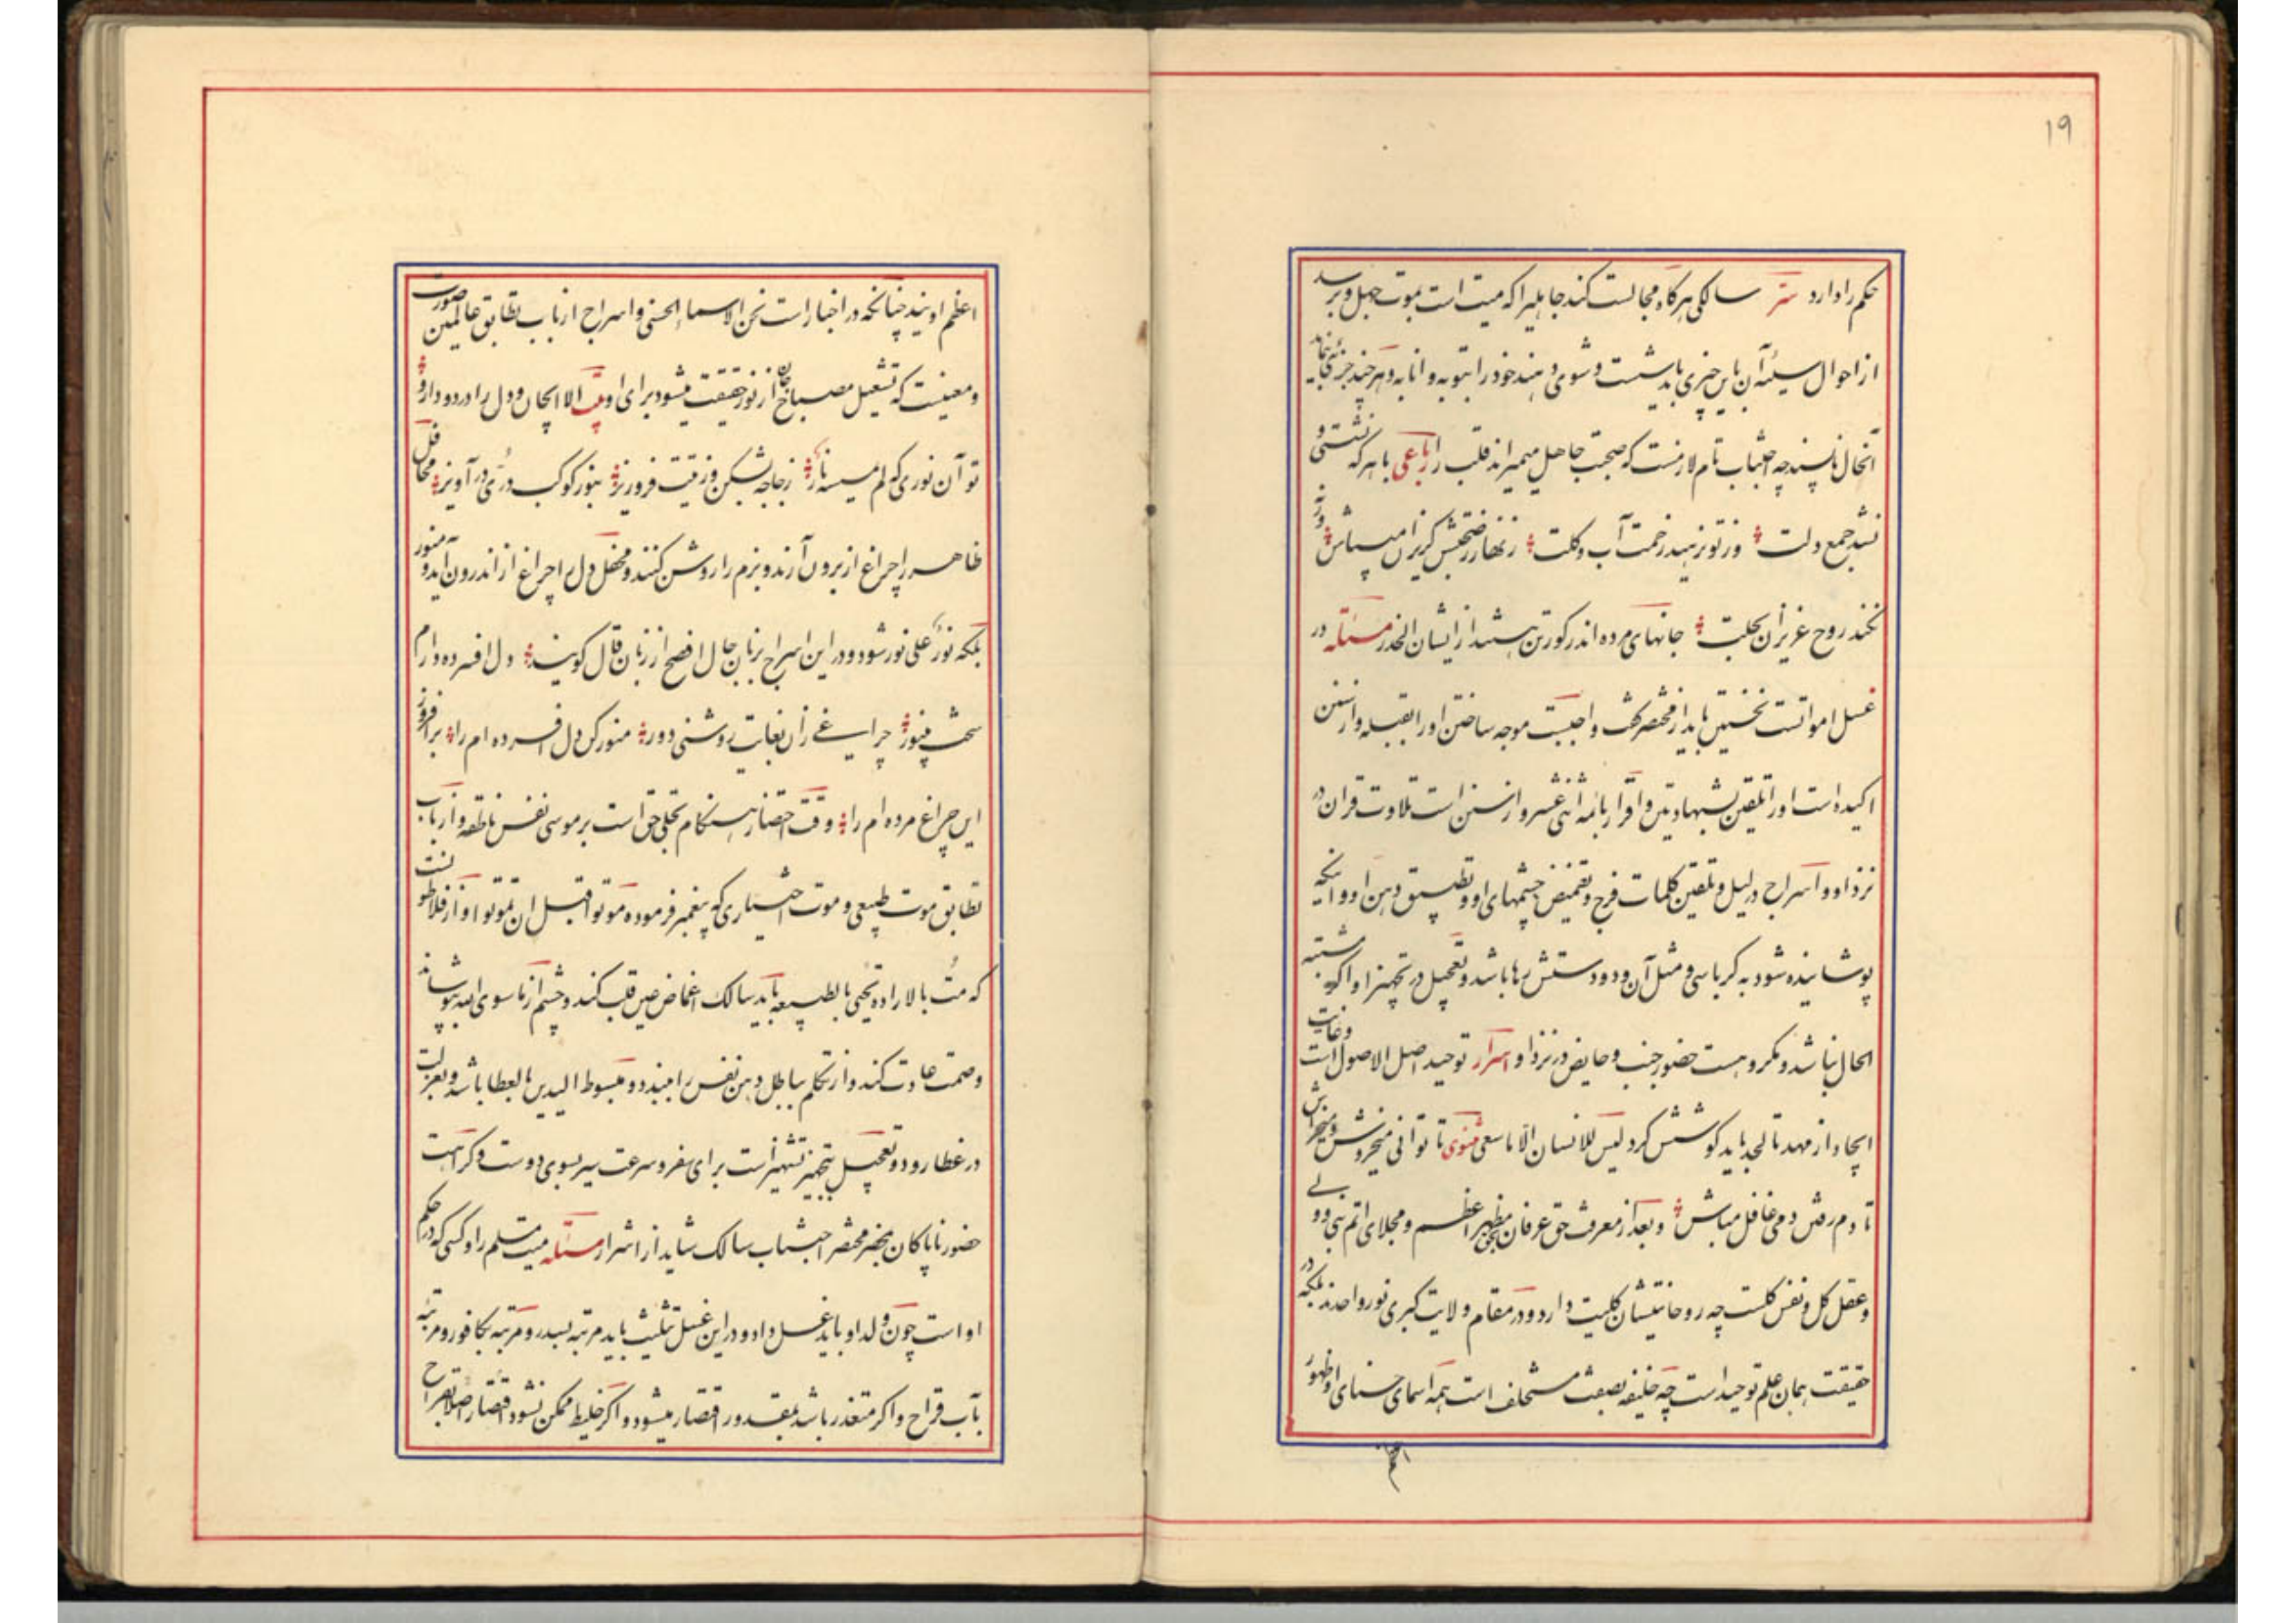 ۱۹
حکم را دارد سرّ سالکی هرگاه مجالست کند جاهلیرا که میت است بموت جهل و برسد
از احوال سیئه آن باین چیزی باید شست و شوی دهند خود را بتوبه و انابه و هر چند جزئی
آنحال ناپسند چه اجتناب تام لازمست که صحبت جاهل میمیراند قلب را رباعی با هر که نشستی و
نشد جمع دلت وز تو نرهید زحمت آب و گلت زنهار ز صحبتش گریزان میباش ورنه
نکند روح عزیزان بحلت جانهای مرده اندر گور تن هستند از ایشان الحذر مسئله در
غسل امواتست نخستین باید از محتضر گفت واجبست موجه ساختن او را بقبله و از سنن
اکیده است او را تلقین بشهادتین و اقرار بائمه اثنی عشر و از سنن است تلاوت قران در
نزد او و اسراج در لیل و تلقین کلمات فرج و تغمیض چشمهای او و تطبیق دهن او و آنکه
پوشانیده شود به کرباسی و مثل آن و دو دستش رها باشد و تعجیل در تجهیز او اگر مشتبه
الحال نباشد و مکروهست حضور جنب و حایض در نزد او اسرار توحید اصل الاصول است و غایت
ایجاد از مهد تا لحد باید کوشش کرد لیس للانسان الّا ما سعی مثنوی تا توانی میخروش و میخراش
تا دم رفتن دمی غافل مباش و بعد از معرفت حق عرفان مظهر اعظم و مجلای اتم نبی و ولی
و عقل کل و نفس کلست چه روحانیتشان کلیت دارد و در مقام ولایت کبری نور واحدند بلکه در
حقیقت همان علم توحید است چه خلیفه بصفت مستخلف است همه اسمای حسنای او و ظهور
اعظم
اعظم اویند چنانکه در اخبار است نحن الاسماء الحسنی و اسراج از باب تطابق عالمین صورت
و معنیست که تشعیل مصباح جان از نور حقیقت میشود برای او بیت الا ای جان و دل را درد و دارو
تو آن نوری که لم تمسسه نارٌ زجاجه بشکن و زیتت فرو ریز بنور کوکب درّی در آویز محافل
ظاهر را چراغ از برون آرند و بزم را روشن کنند و محفل دل را چراغ از اندرون آید و منور
بلکه نورٌ علی نور شود و در این اسراج بزبان حال افصح از زبان قال گویند دل افسرده دارم
سخت بینور چراغی زان بغایت روشنی دور منور کن دل افسرده ام را برافروز
این چراغ مرده ام را و وقت احتضار هنگام تجلی حق است بر موسی نفس ناطقه و از باب
تطابق موت طبیعی و موت اختیاری که پیغمبر فرموده موتوا قبل ان تموتوا و از افلاطونست
که مُت بالاراده تحیی بالطبیعه باید سالک اغماض عین قلب کند و چشم از ما سوی الله بپوشاند
و صمت عادت کند و از تکلم بباطل دهن نفس را ببندد و مبسوط الیدین بالعطا باشد و بعزلت
در غطا رود و تعجیل بتجهیز تشهیر است برای سفر و سرعت سیر بسوی دوست و کراهت
حضور ناپاکان بمحضر محتضر اجتناب سالک شاید از اشرار مسئله میت مسلم را و کسی که در حکم
او است چون ولد او باید غسل داد و در این غسل تثلیث باید مرتبه بسدر و مرتبه بکافور و مرتبه
بآب قراح و اگر متعذر باشد بمقدور اقتصار میشود و اگر خلیط ممکن نشود اقتصار اصلا بقراح